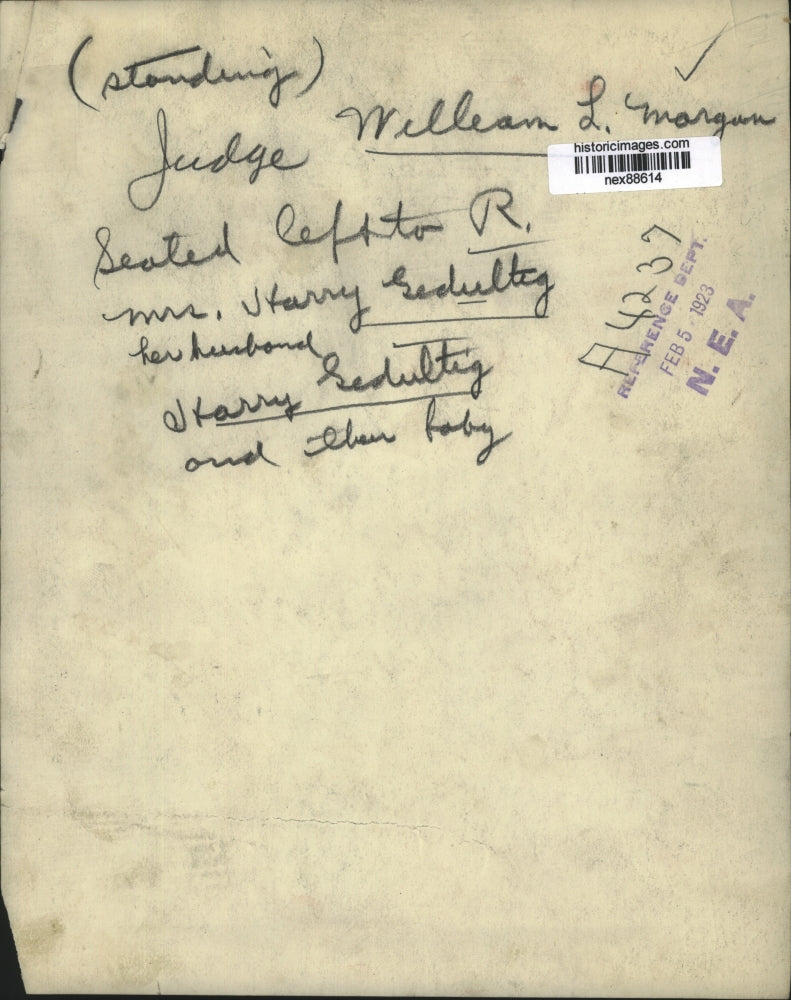 (standing)
Judge William L. Morgan
historicimages.com
nex88614
Seated left to R.
mrs. Harry Gedultig
her husband
Harry Gedultig
and their baby
A4237
REFERENCE DEPT.
FEB 5 1923
N. E. A.